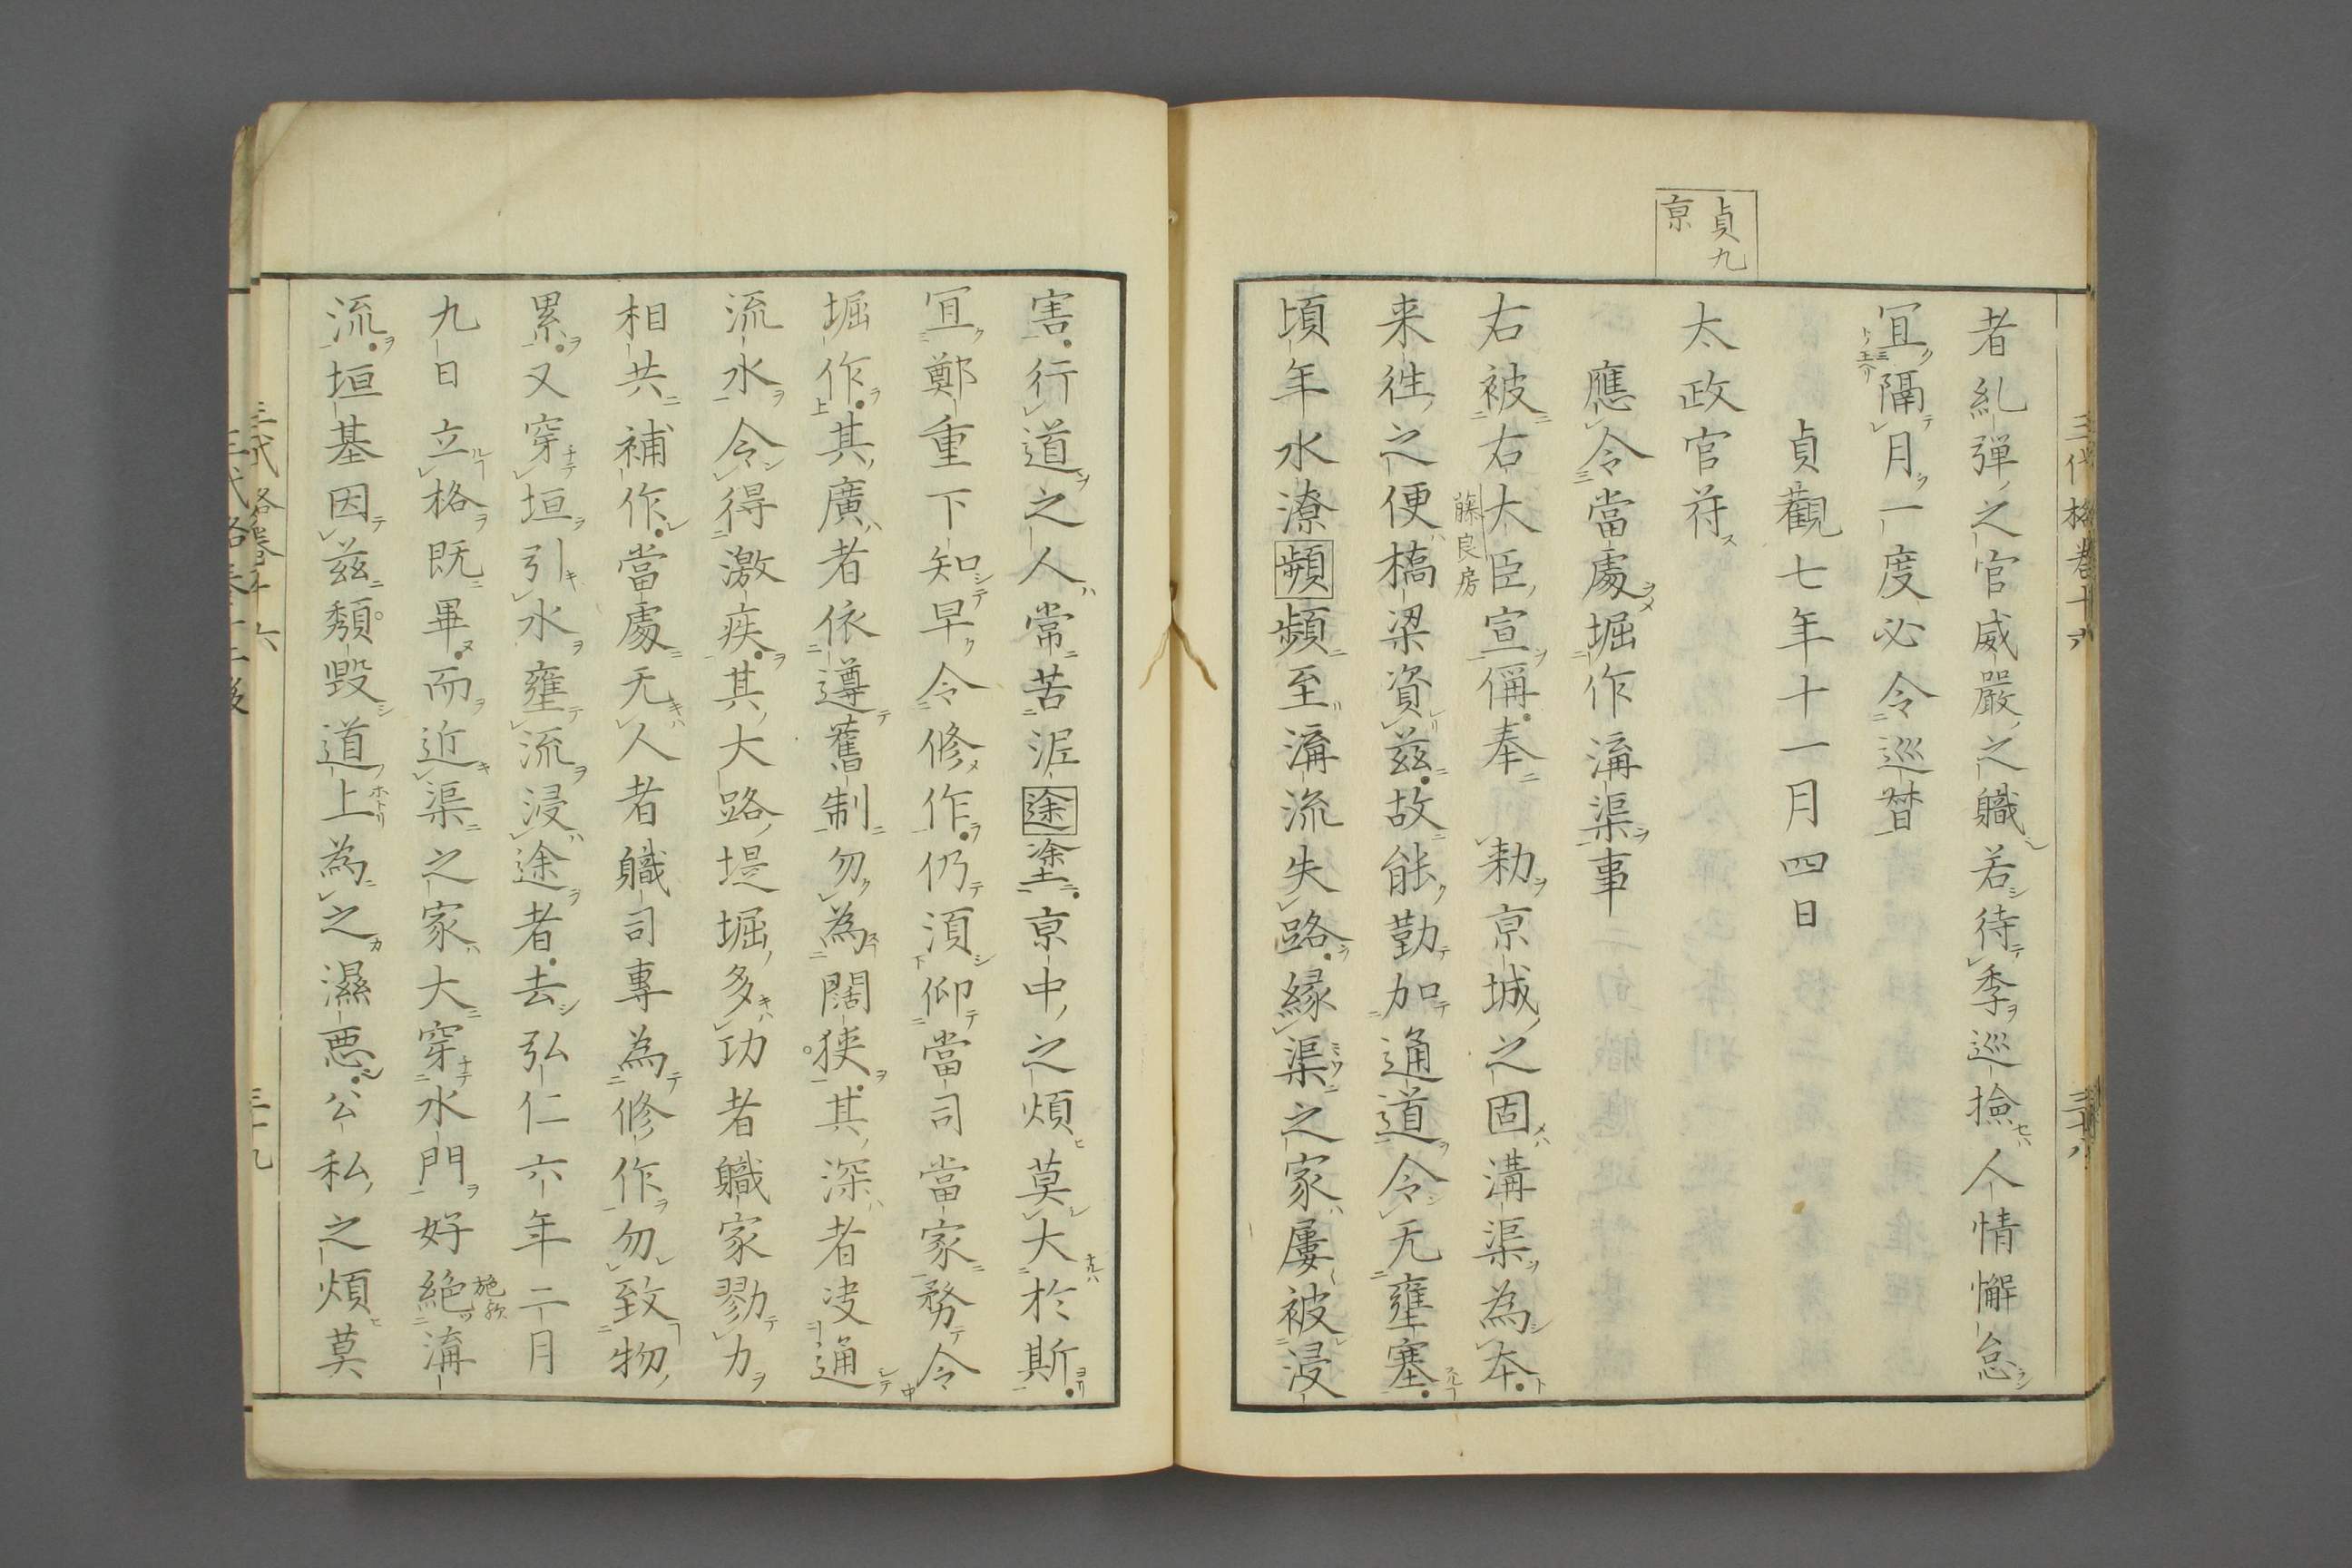 貞九
京
者糺彈之官威嚴之職若待季巡撿人情懈怠
冝隔月一度必令巡督
貞觀七年十一月四日
太政官苻
應令當處堀作溝渠事
右被右大臣宣偁奉勅京城之固溝渠為本
藤良房
来往之便橋梁資兹故能勤加通道令无壅塞
頃年水潦頻頻至溝流失路縁渠之家屢被浸
害行道之人常苦泥途塗京中之煩莫大於斯
冝鄭重下知早令修作仍湏仰當司當家務令
堀作其廣者依遵舊制勿為闊狹其深者决通
流水令得激疾其大路堤堀多功者職家勠力
相共補作當處无人者職司專為修作勿致物
累又穿垣引水壅流浸途者去弘仁六年二月
九日立格既畢而近渠之家大穿水門好絶溝
施歟
流垣基因兹頽毀道上為之濕悪公私之煩莫